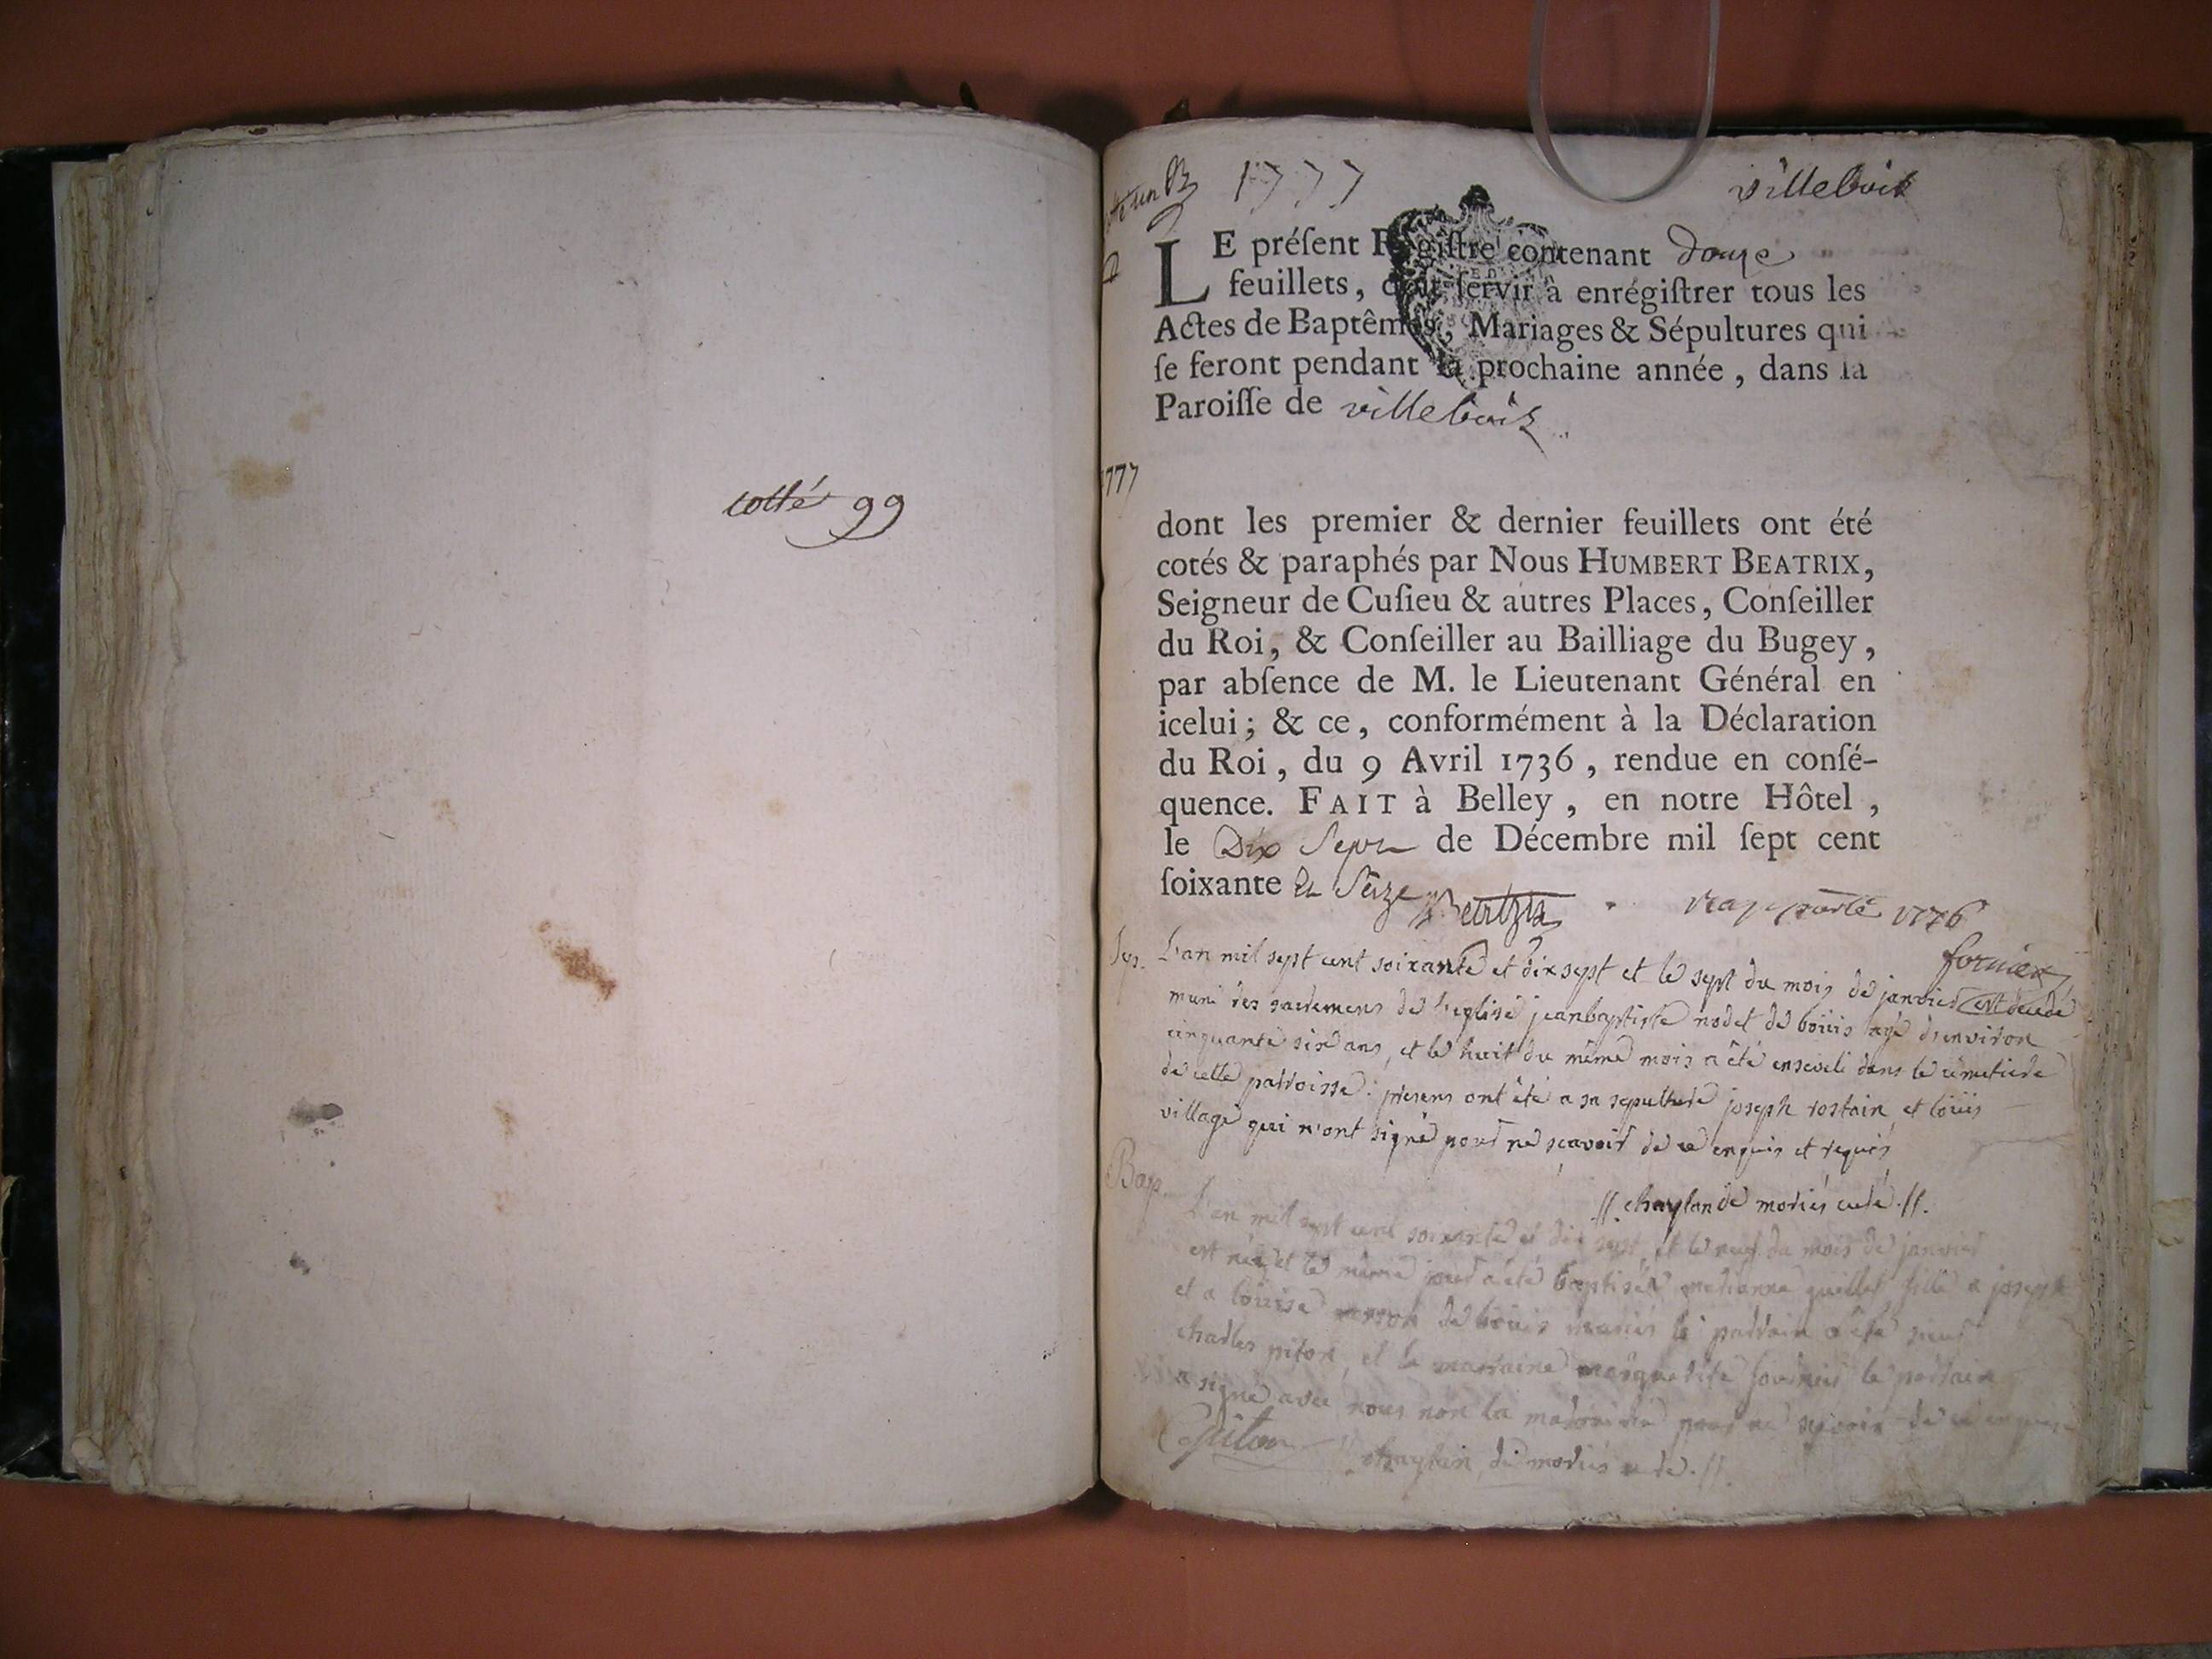 cotté 99
1777
villebois
LE préſent Regiſtre contenant douze
feuillets, doit ſervir à enrégiſtrer tous les
Actes de Baptêmes, Mariages & Sépultures qui
ſe feront pendant la prochaine année, dans la
Paroiſſe de villebois
1777
dont les premier & dernier feuillets ont été
cotés & paraphés par Nous HUMBERT BEATRIX,
Seigneur de Cuſieu & autres Places, Conſeiller
du Roi, & Conſeiller au Bailliage du Bugey,
par abſence de M. le Lieutenant Général en
icelui; & ce, conformément à la Déclaration
du Roi, du 9 Avril 1736, rendue en conſé-
quence. FAIT à Belley, en notre Hôtel,
le Dix Sept de Décembre mil ſept cent
ſoixante et Seize Beatrix rapporté 1776
fornier
Sep. L'an mil sept cent soixante et dix sept et le sept du mois de janvier est decedé
muni des sacremens de l'eglise jeanbaptiste nodet de boüis agé d'environ
cinquante six ans, et le huit du même mois a été enseveli dans le cimetiere
de cette parroisse: presens ont été a sa sepulture joseph rostain et loüis
village qui n'ont signé pour ne sçavoir de ce enquis et requis
//. chaplan de moriés curé .//.
Bap. L'an mil sept cent soixante et dix sept, et le neuf du mois de janvier
est née et le même jour a été baptisée marianne quillet fille a joseph
et a loüise de boüis mariés le parrain a été sieur
charles piton, et la marraine marguerite le parrain
a signé avec nous non la marraine pour ne sçavoir de ce enquise
Cpiton // chaplan de moriés curé .//.